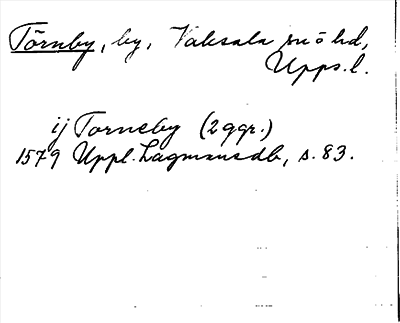 Törnby, by, Vaksala sn o hd,
Upps. l.
ij Torneby (2 ggr.)
1579 Uppl. Lagmansdb, s. 83.